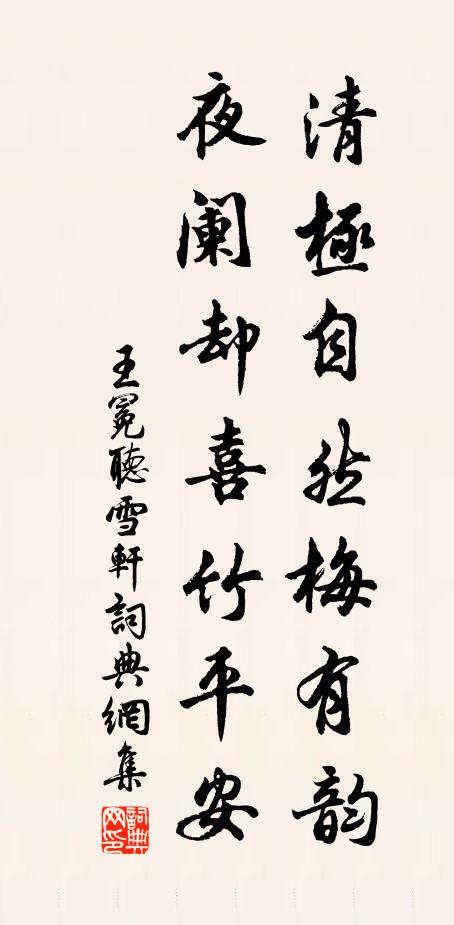 清極自然梅有韵
夜阑却喜竹平安
王冕聽雪軒詞典網集
詞典網印